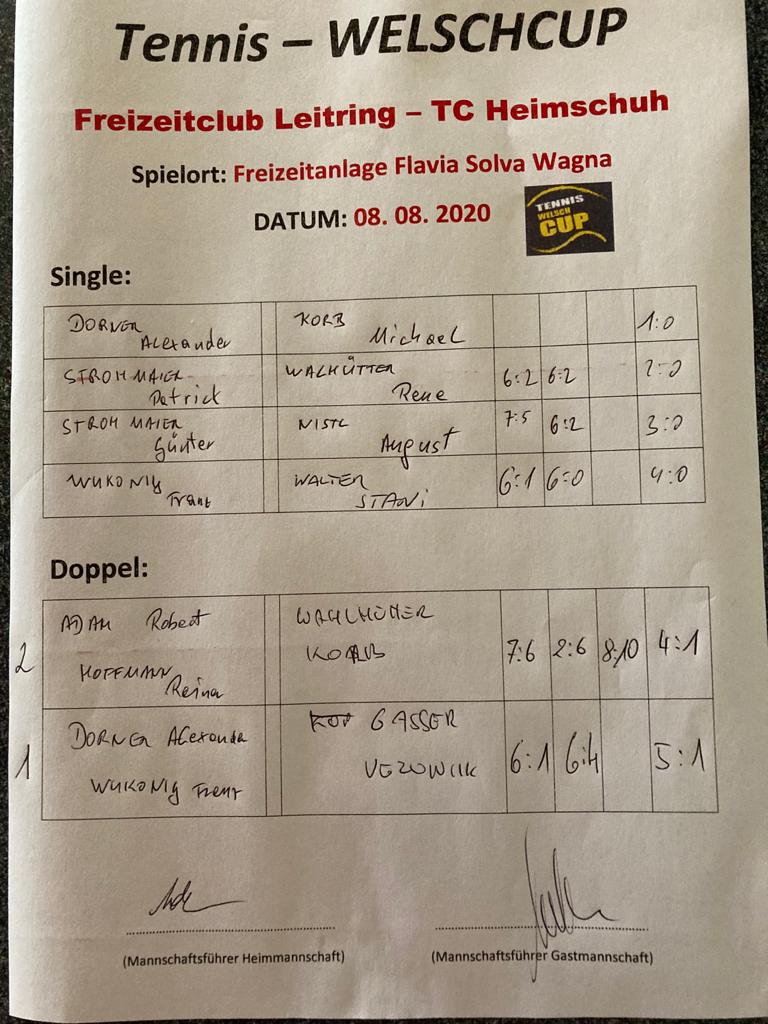 Tennis – WELSCHCUP
Freizeitclub Leitring – TC Heimschuh
Spielort: Freizeitanlage Flavia Solva Wagna
DATUM: 08. 08. 2020
TENNIS
WELSCH
CUP
Single:
DORNER Alexander KORB Michael 1:0
STROHMAIER Patrick WALHÜTTER Rene 6:2 6:2 2:0
STROHMAIER Günter NISTL August 7:5 6:2 3:0
WUKONIG Franz WALTER STANi 6:1 6:0 4:0
Doppel:
2 ADAM Robert WAHLHÜTTER
HOFFMANN Reina KORB 7:6 2:6 8:10 4:1
1 DORNER Alexander GASSER
WUKONIG Franz VEZOWIK 6:1 6:4 5:1
(Mannschaftsführer Heimmannschaft) (Mannschaftsführer Gastmannschaft)